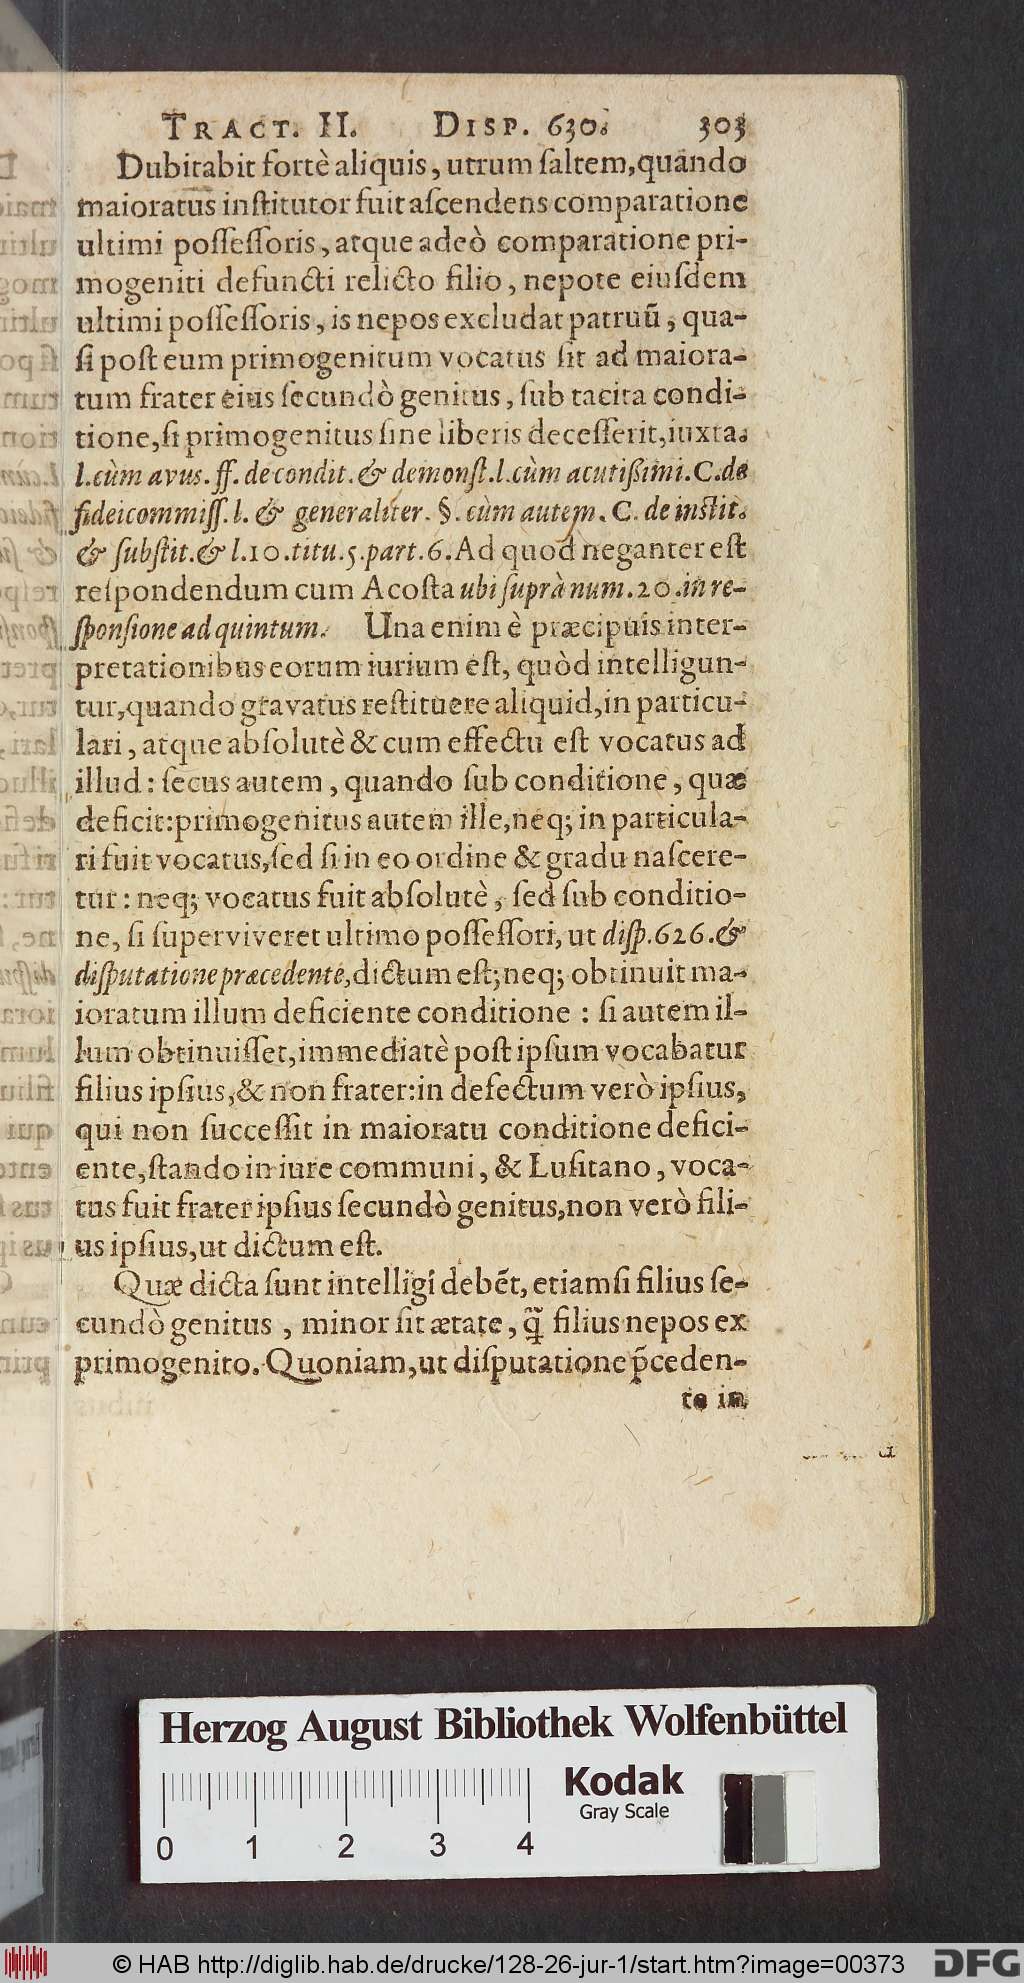 TRACT. II. DISP. 630. 303
Dubitabit fortè aliquis, utrum ſaltem, quando
maioratus inſtitutor fuit aſcendens comparatione
ultimi poſſeſſoris, atque adeò comparatione pri-
mogeniti defuncti relicto filio, nepote eiuſdem
ultimi poſſeſſoris, is nepos excludat patruũ, qua-
ſi poſt eum primogenitum vocatus ſit ad maiora-
tum frater eius ſecundò genitus, ſub tacita condi-
tione, ſi primogenitus ſine liberis deceſſerit, iuxta.
l. cùm avus. ff. de condit. & demonſt. l. cùm acutißimi. C. de
fideicommiſſ. l. & generaliter. §. cùm autem. C. de inſtit.
& ſubſtit. & l. 10. titu. 5. part. 6. Ad quod neganter eſt
reſpondendum cum Acoſta ubi ſuprà num. 20. in re-
ſponſione ad quintum. Una enim è præcipuis inter-
pretationibus eorum iurium eſt, quòd intelligun-
tur, quando gravatus reſtituere aliquid, in particu-
lari, atque abſolutè & cum effectu eſt vocatus ad
illud: ſecus autem, quando ſub conditione, quæ
deficit: primogenitus autem ille, neq; in particula-
ri fuit vocatus, ſed ſi in eo ordine & gradu naſcere-
tur: neq; vocatus fuit abſolutè, ſed ſub conditio-
ne, ſi ſuperviveret ultimo poſſeſſori, ut diſp. 626. &
diſputatione præcedente, dictum eſt; neq; obtinuit ma-
ioratum illum deficiente conditione : ſi autem il-
lum obtinuiſſet, immediatè poſt ipſum vocabatur
filius ipſius, & non frater: in defectum verò ipſius,
qui non ſucceſſit in maioratu conditione defici-
ente, ſtando in iure communi, & Luſitano, voca-
tus fuit frater ipſius ſecundò genitus, non verò fili-
us ipſius, ut dictum eſt.
Quæ dicta ſunt intelligi debẽt, etiamſi filius ſe-
cundò genitus, minor ſit ætate, q̃ filius nepos ex
primogenito. Quoniam, ut diſputatione p̃ceden-
te in
Herzog August Bibliothek Wolfenbüttel
Kodak
Gray Scale
0 1 2 3 4
© HAB http://diglib.hab.de/drucke/128-26-jur-1/start.htm?image=00373
DFG